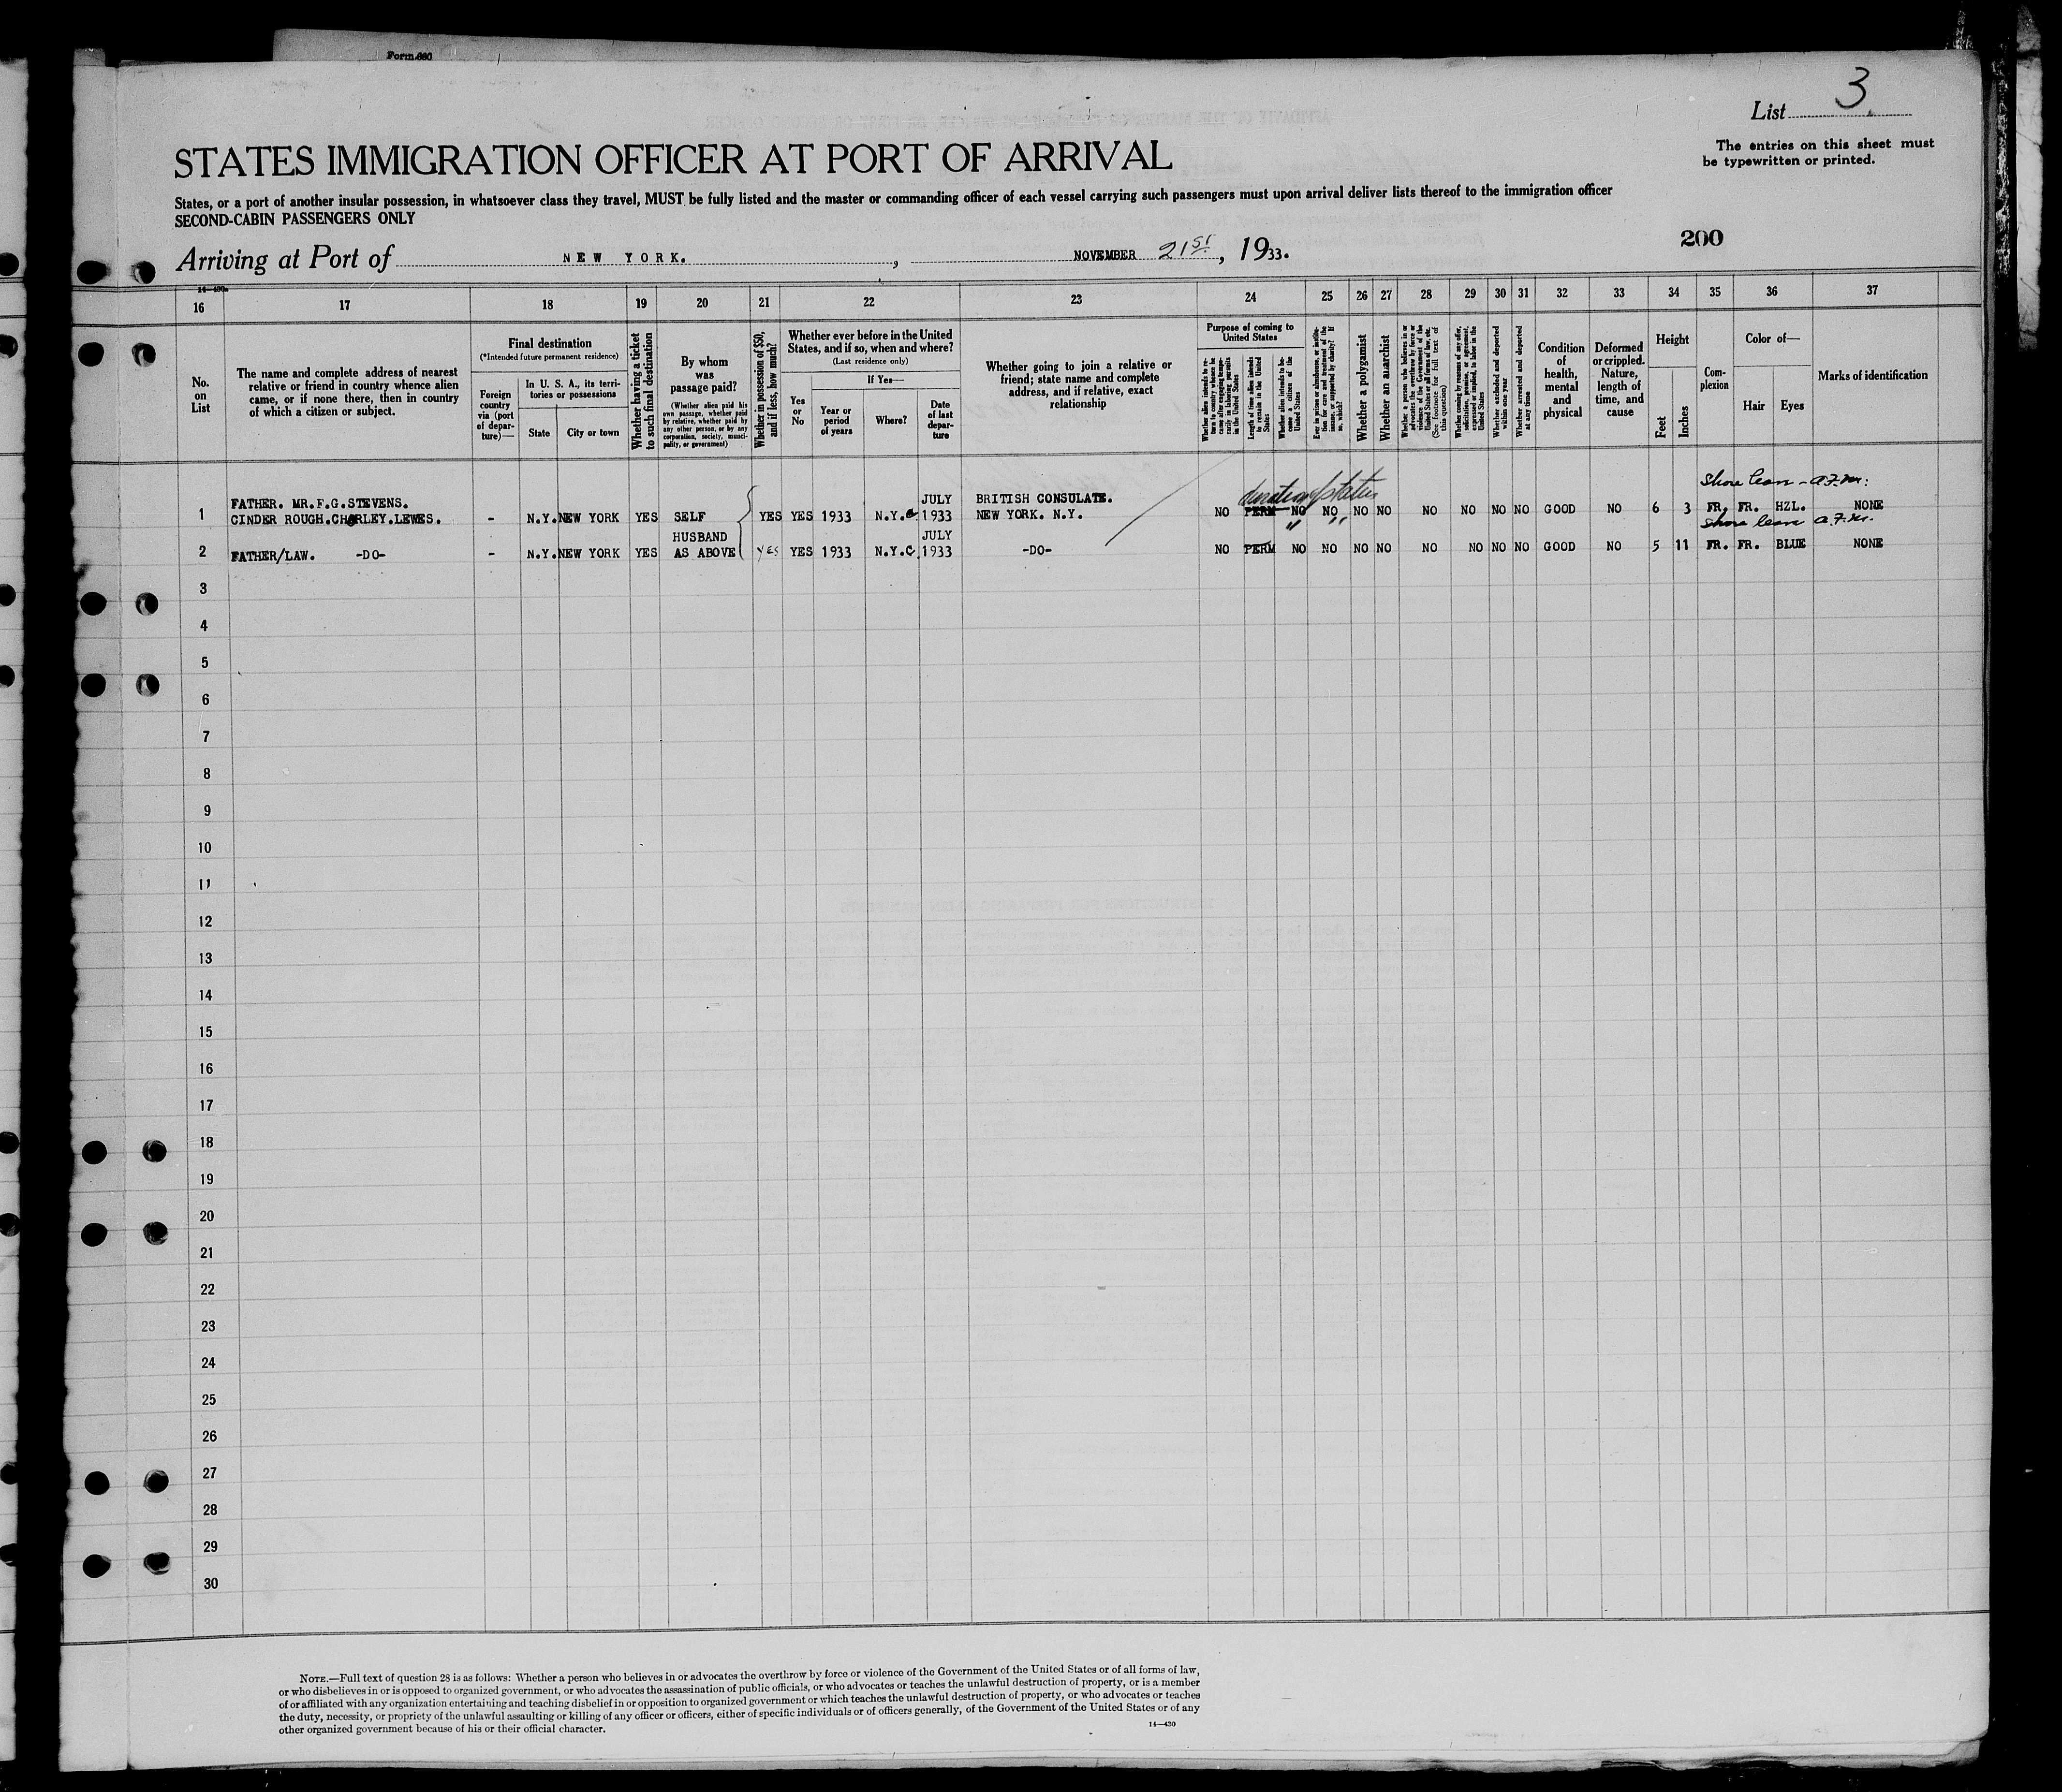 Form 680
List 3
The entries on this sheet must
be typewritten or printed.
STATES IMMIGRATION OFFICER AT PORT OF ARRIVAL
States, or a port of another insular possession, in whatsoever class they travel, MUST be fully listed and the master or commanding officer of each vessel carrying such passengers must upon arrival deliver lists thereof to the immigration officer
SECOND-CABIN PASSENGERS ONLY
200
Arriving at Port of NEW YORK. , NOVEMBER 21st, 1933.
14—430
16 17 18 19 20 21 22 23 24 25 26 27 28 29 30 31 32 33 34 35 36 37
No.
on
List
The name and complete address of nearest
relative or friend in country whence alien
came, or if none there, then in country
of which a citizen or subject.
Final destination
(*Intended future permanent residence)
Foreign
country
via (port
of depar-
ture)—
In U. S. A., its terri-
tories or possessions
State
City or town
Whether having a ticket
to such final destination
By whom
was
passage paid?
(Whether alien paid his
own passage, whether paid
by relative, whether paid by
any other person, or by any
corporation, society, munici-
pality, or government)
Whether in possession of $50,
and if less, how much?
Whether ever before in the United
States, and if so, when and where?
(Last residence only)
Yes
or
No
If Yes—
Year or
period
of years
Where?
Date
of last
depar-
ture
Whether going to join a relative or
friend; state name and complete
address, and if relative, exact
relationship
Purpose of coming to
United States
Whether alien intends to re-
turn to country whence he
came after engaging tempo-
rarily in laboring pursuits
in the United States
Length of time alien intends
to remain in the United
States
Whether alien intends to be-
come a citizen of the
United States
Ever in prison or almshouse, or institu-
tion for care and treatment of the
insane, or supported by charity? If
so, which?
Whether a polygamist
Whether an anarchist
Whether a person who believes in or
advocates the overthrow by force or
violence of the Government of the
United States or all forms of law, etc.
(See footnote for full text of
this question)
Whether coming by reason of any offer,
solicitation, promise, or agreement,
expressed or implied, to labor in the
United States
Whether excluded and deported
within one year
Whether arrested and deported
at any time
Condition
of
health,
mental
and
physical
Deformed
or crippled.
Nature,
length of
time, and
cause
Height
Feet
Inches
Com-
plexion
Color of—
Hair
Eyes
Marks of identification
duration of status
Shore leave - A.F.M.
FATHER. MR.F.G.STEVENS. JULY BRITISH CONSULATE.
1 CINDER ROUGH.CHORLEY.LEWES. - N.Y. NEW YORK YES SELF YES YES 1933 N.Y.C. 1933 NEW YORK. N.Y. NO PERM NO NO NO NO NO NO NO NO GOOD NO 6 3 FR. FR. HZL. NONE
" " Shore leave A.F.M.
HUSBAND JULY
2 FATHER/LAW. -DO- - N.Y. NEW YORK YES AS ABOVE YES YES 1933 N.Y.C. 1933 -DO- NO PERM NO NO NO NO NO NO NO NO GOOD NO 5 11 FR. FR. BLUE NONE
3
4
5
6
7
8
9
10
11
12
13
14
15
16
17
18
19
20
21
22
23
24
25
26
27
28
29
30
NOTE.—Full text of question 28 is as follows: Whether a person who believes in or advocates the overthrow by force or violence of the Government of the United States or of all forms of law,
or who disbelieves in or is opposed to organized government, or who advocates the assassination of public officials, or who advocates or teaches the unlawful destruction of property, or is a member
of or affiliated with any organization entertaining and teaching disbelief in or opposition to organized government or which teaches the unlawful destruction of property, or who advocates or teaches
the duty, necessity, or propriety of the unlawful assaulting or killing of any officer or officers, either of specific individuals or of officers generally, of the Government of the United States or of any
other organized government because of his or their official character.
14—430